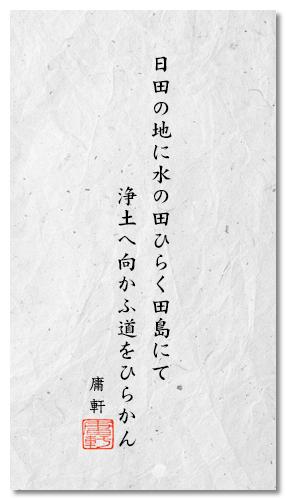 日田の地に水の田ひらく田島にて
浄土へ向かふ道をひらかん
庸軒
庸軒